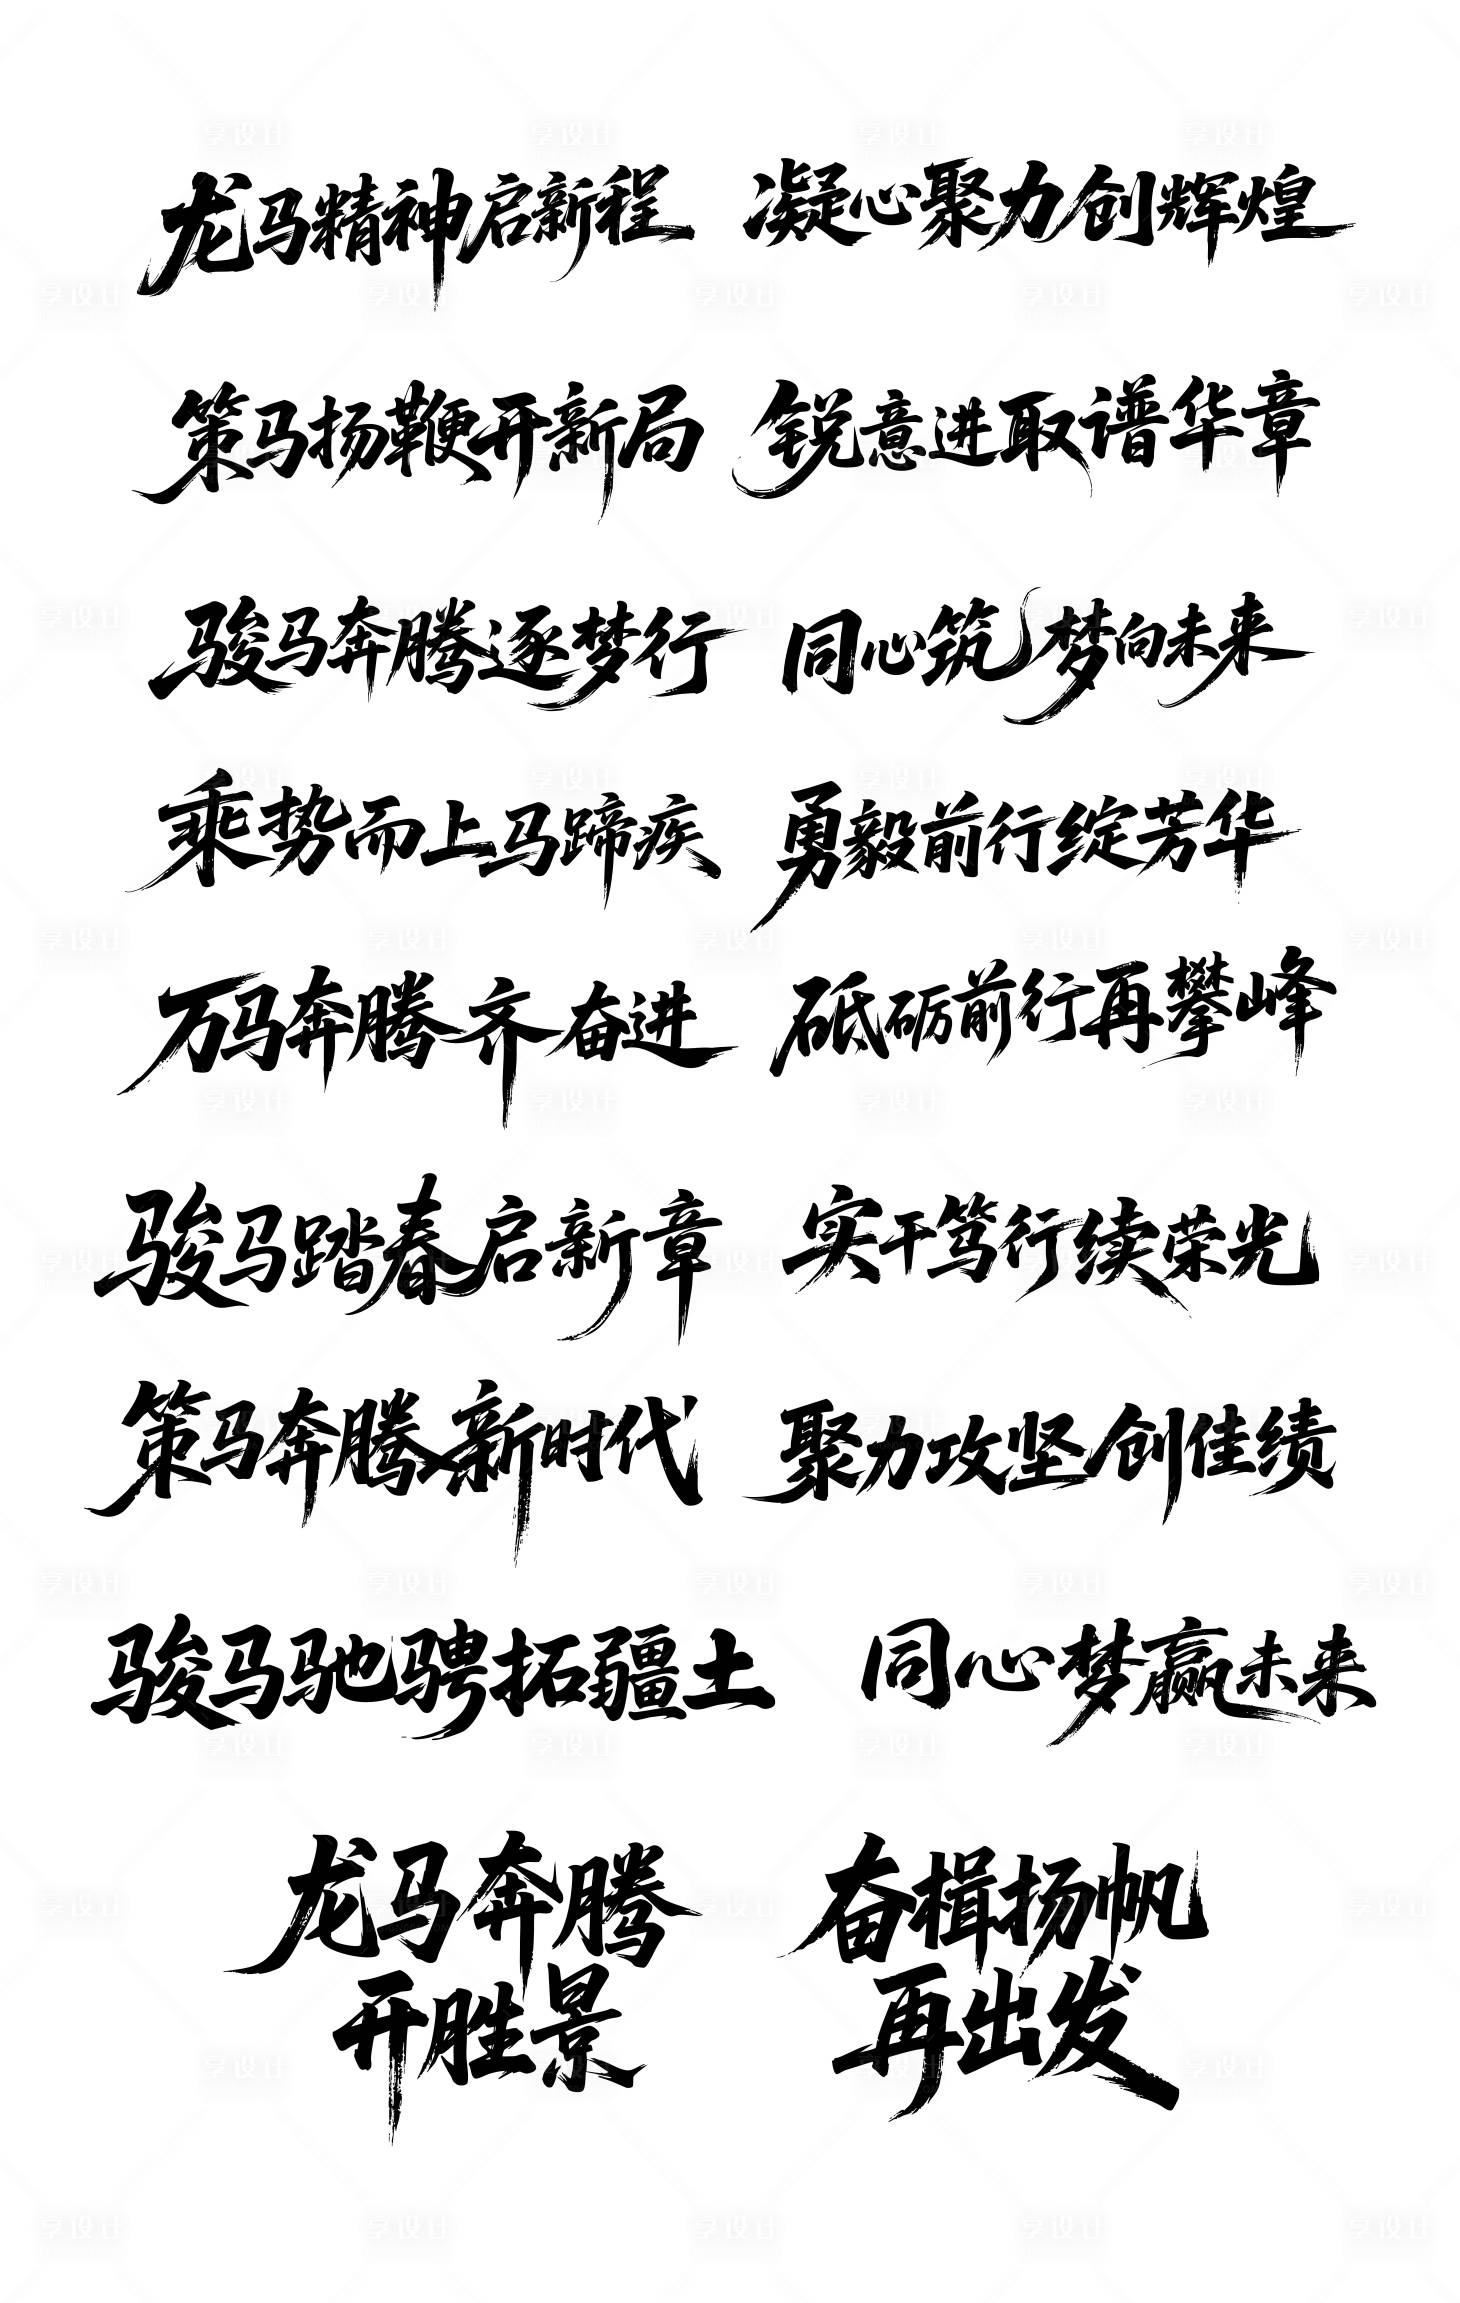 龙马精神启新程 凝心聚力创辉煌
策马扬鞭开新局 锐意进取谱华章
骏马奔腾逐梦行 同心筑梦向未来
乘势而上马蹄疾 勇毅前行绽芳华
万马奔腾齐奋进 砥砺前行再攀峰
骏马踏春启新章 实干笃行续荣光
策马奔腾新时代 聚力攻坚创佳绩
骏马驰骋拓疆土 同心梦赢未来
龙马奔腾 奋楫扬帆
开胜景 再出发